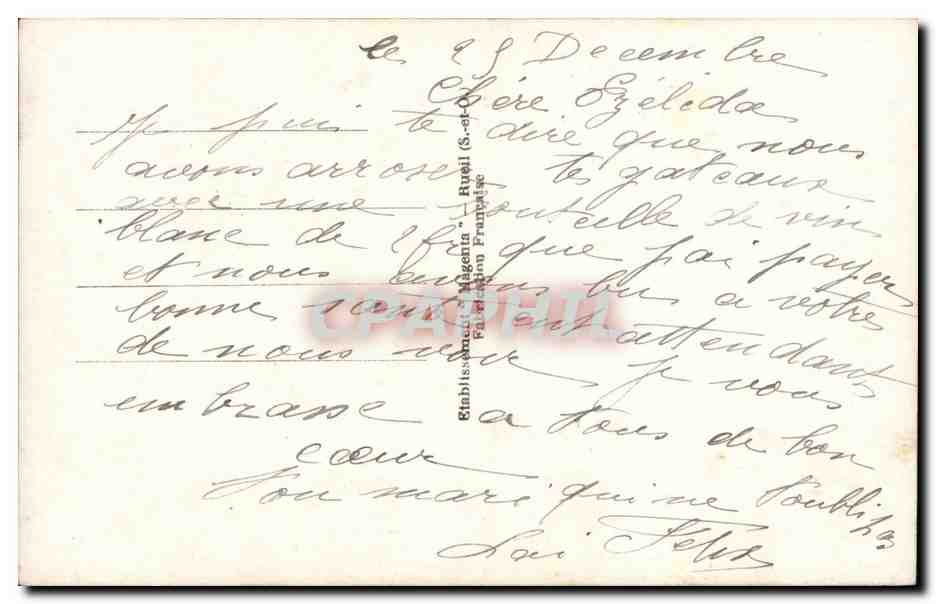 le 25 Decembre
Chère Ezélida
Je puis te dire que nous
avons arroser tes gateaux
avec une bouteille de vin
blanc de 2fr que j'ai payer
et nous avons bus a votre
bonne santé ent attendant
de nous voir je vous
embrasse a tous de bon
cœur
ton mari qui ne t'oubli pas
Felix
Etablissement "Magenta" - Rueil (S.-et-O.)
Fabrication Française
CPAPHIL